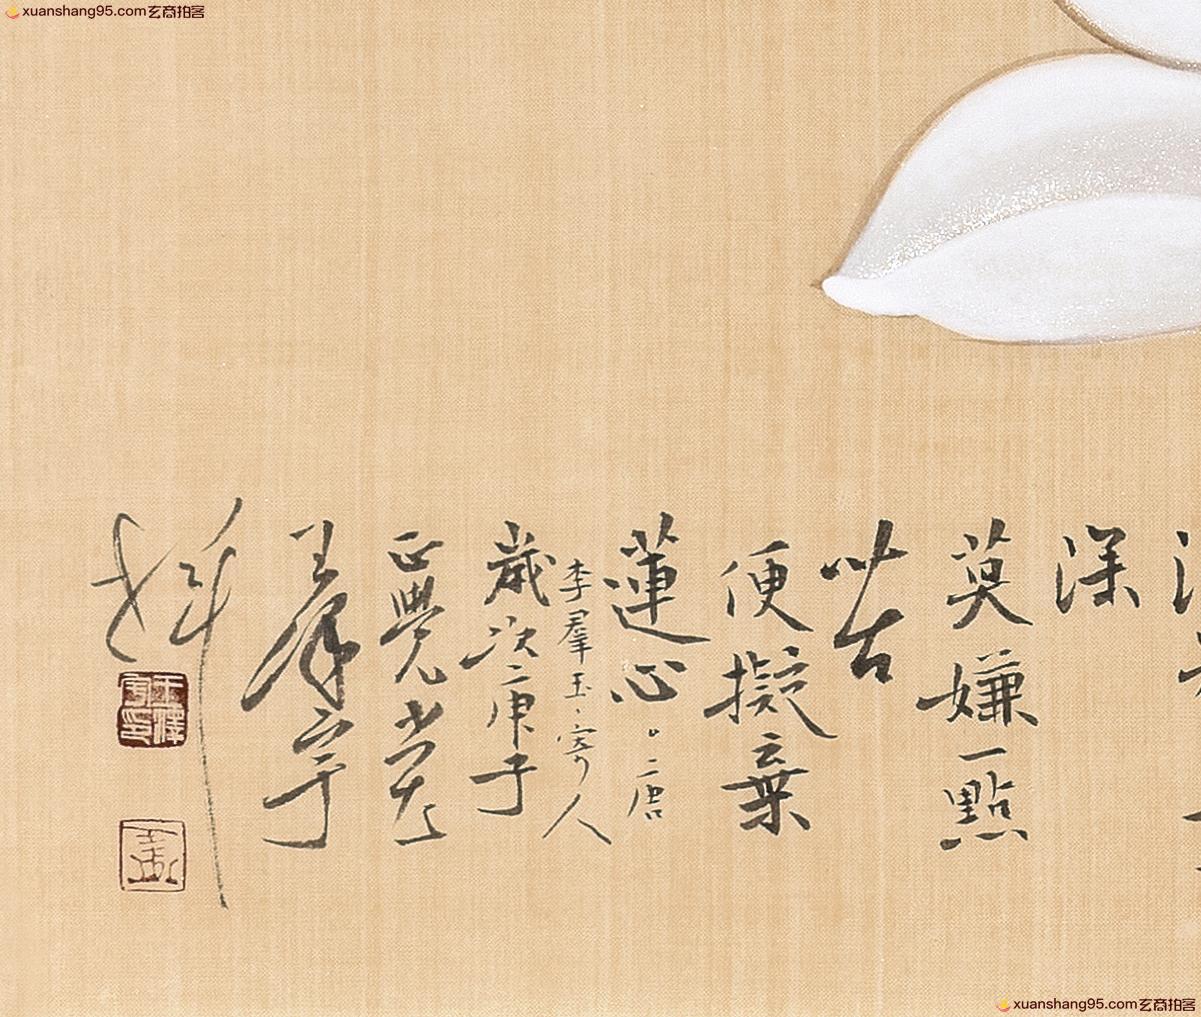 xuanshang95.com玄商拍客
深
莫嫌一點
苦
便擬棄
蓮心
唐
李羣玉寄人
歲次庚子
正覺堂
澤宇
xuanshang95.com玄商拍客